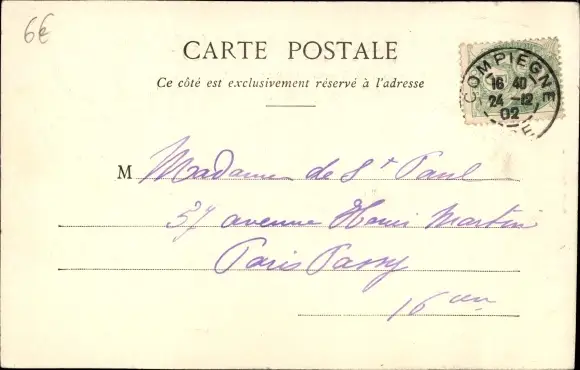 6€
CARTE POSTALE
Ce côté est exclusivement réservé à l'adresse
COMPIEGNE
16 40
24 -12
02
M Madame de St Paul
37 avenue Henri Martin
Paris Passy
16 em